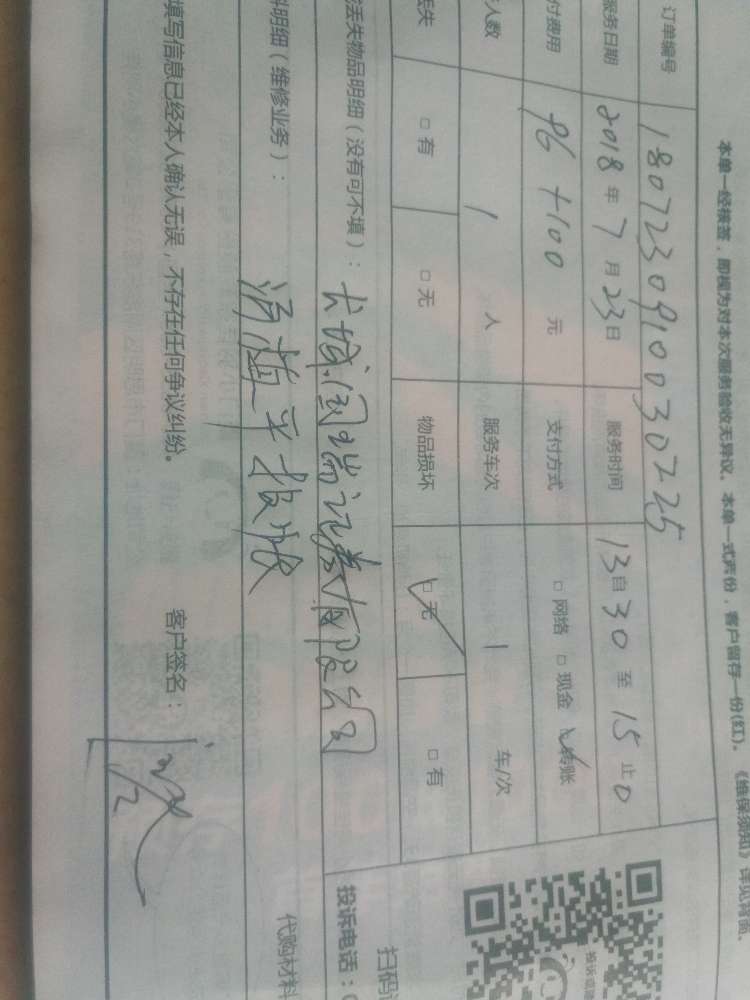 本单一经核签，即视为对本次服务验收无异议。本单一式两份，客户留存一份(红)。《维保须知》详见背面。
订单编号 1807230910030225
服务日期 2018年7月23日 服务时间 13自30至15止0
付费用 96+100 元 支付方式 □网络 □现金 ☑转账
人数 1 人 服务车次 1 车/次
丢失 □有 □无 物品损坏 ☑无 □有
丢失物品明细（没有可不填）：长城国瑞证券有限公司
料明细（维修业务）：
填写信息已经本人确认无误，不存在任何争议纠纷。
客户签名：
扫码
投诉电话：
代购材料